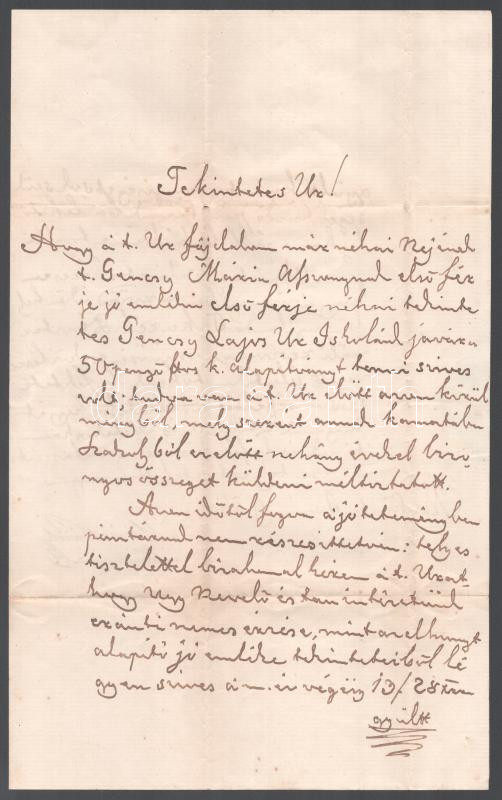 Tekintetes Ur!
Hogy a t. Ur fájdalom már néhai Nejének
t. Gencsy Mária Asszonynak első fér
je jó emlékű első férje néhai tekinte
tes Gencsy Lajos Ur Iskolánk javára
50 pengő ftos k. alapítványt tenni szives
volt: tudva van a t. Ur előtt azon körül
ményből, mely szerint annak kamatába
ból ez előtt nehány évekel bizo
nyos összeget küldeni méltóztatott.
Azon időtől fogva a jótéteményben
pénztárunk nem részesittetvén: teljes
tisztelettel bizalommal kérem a t. Urat
hogy Ugy Nevelő és tanintézetünk
iránti nemes érzése, mint az elhunyt
alapító jó emléke tekintetéből lé
gyen szives a m. év végéig 13/28
gyűlt